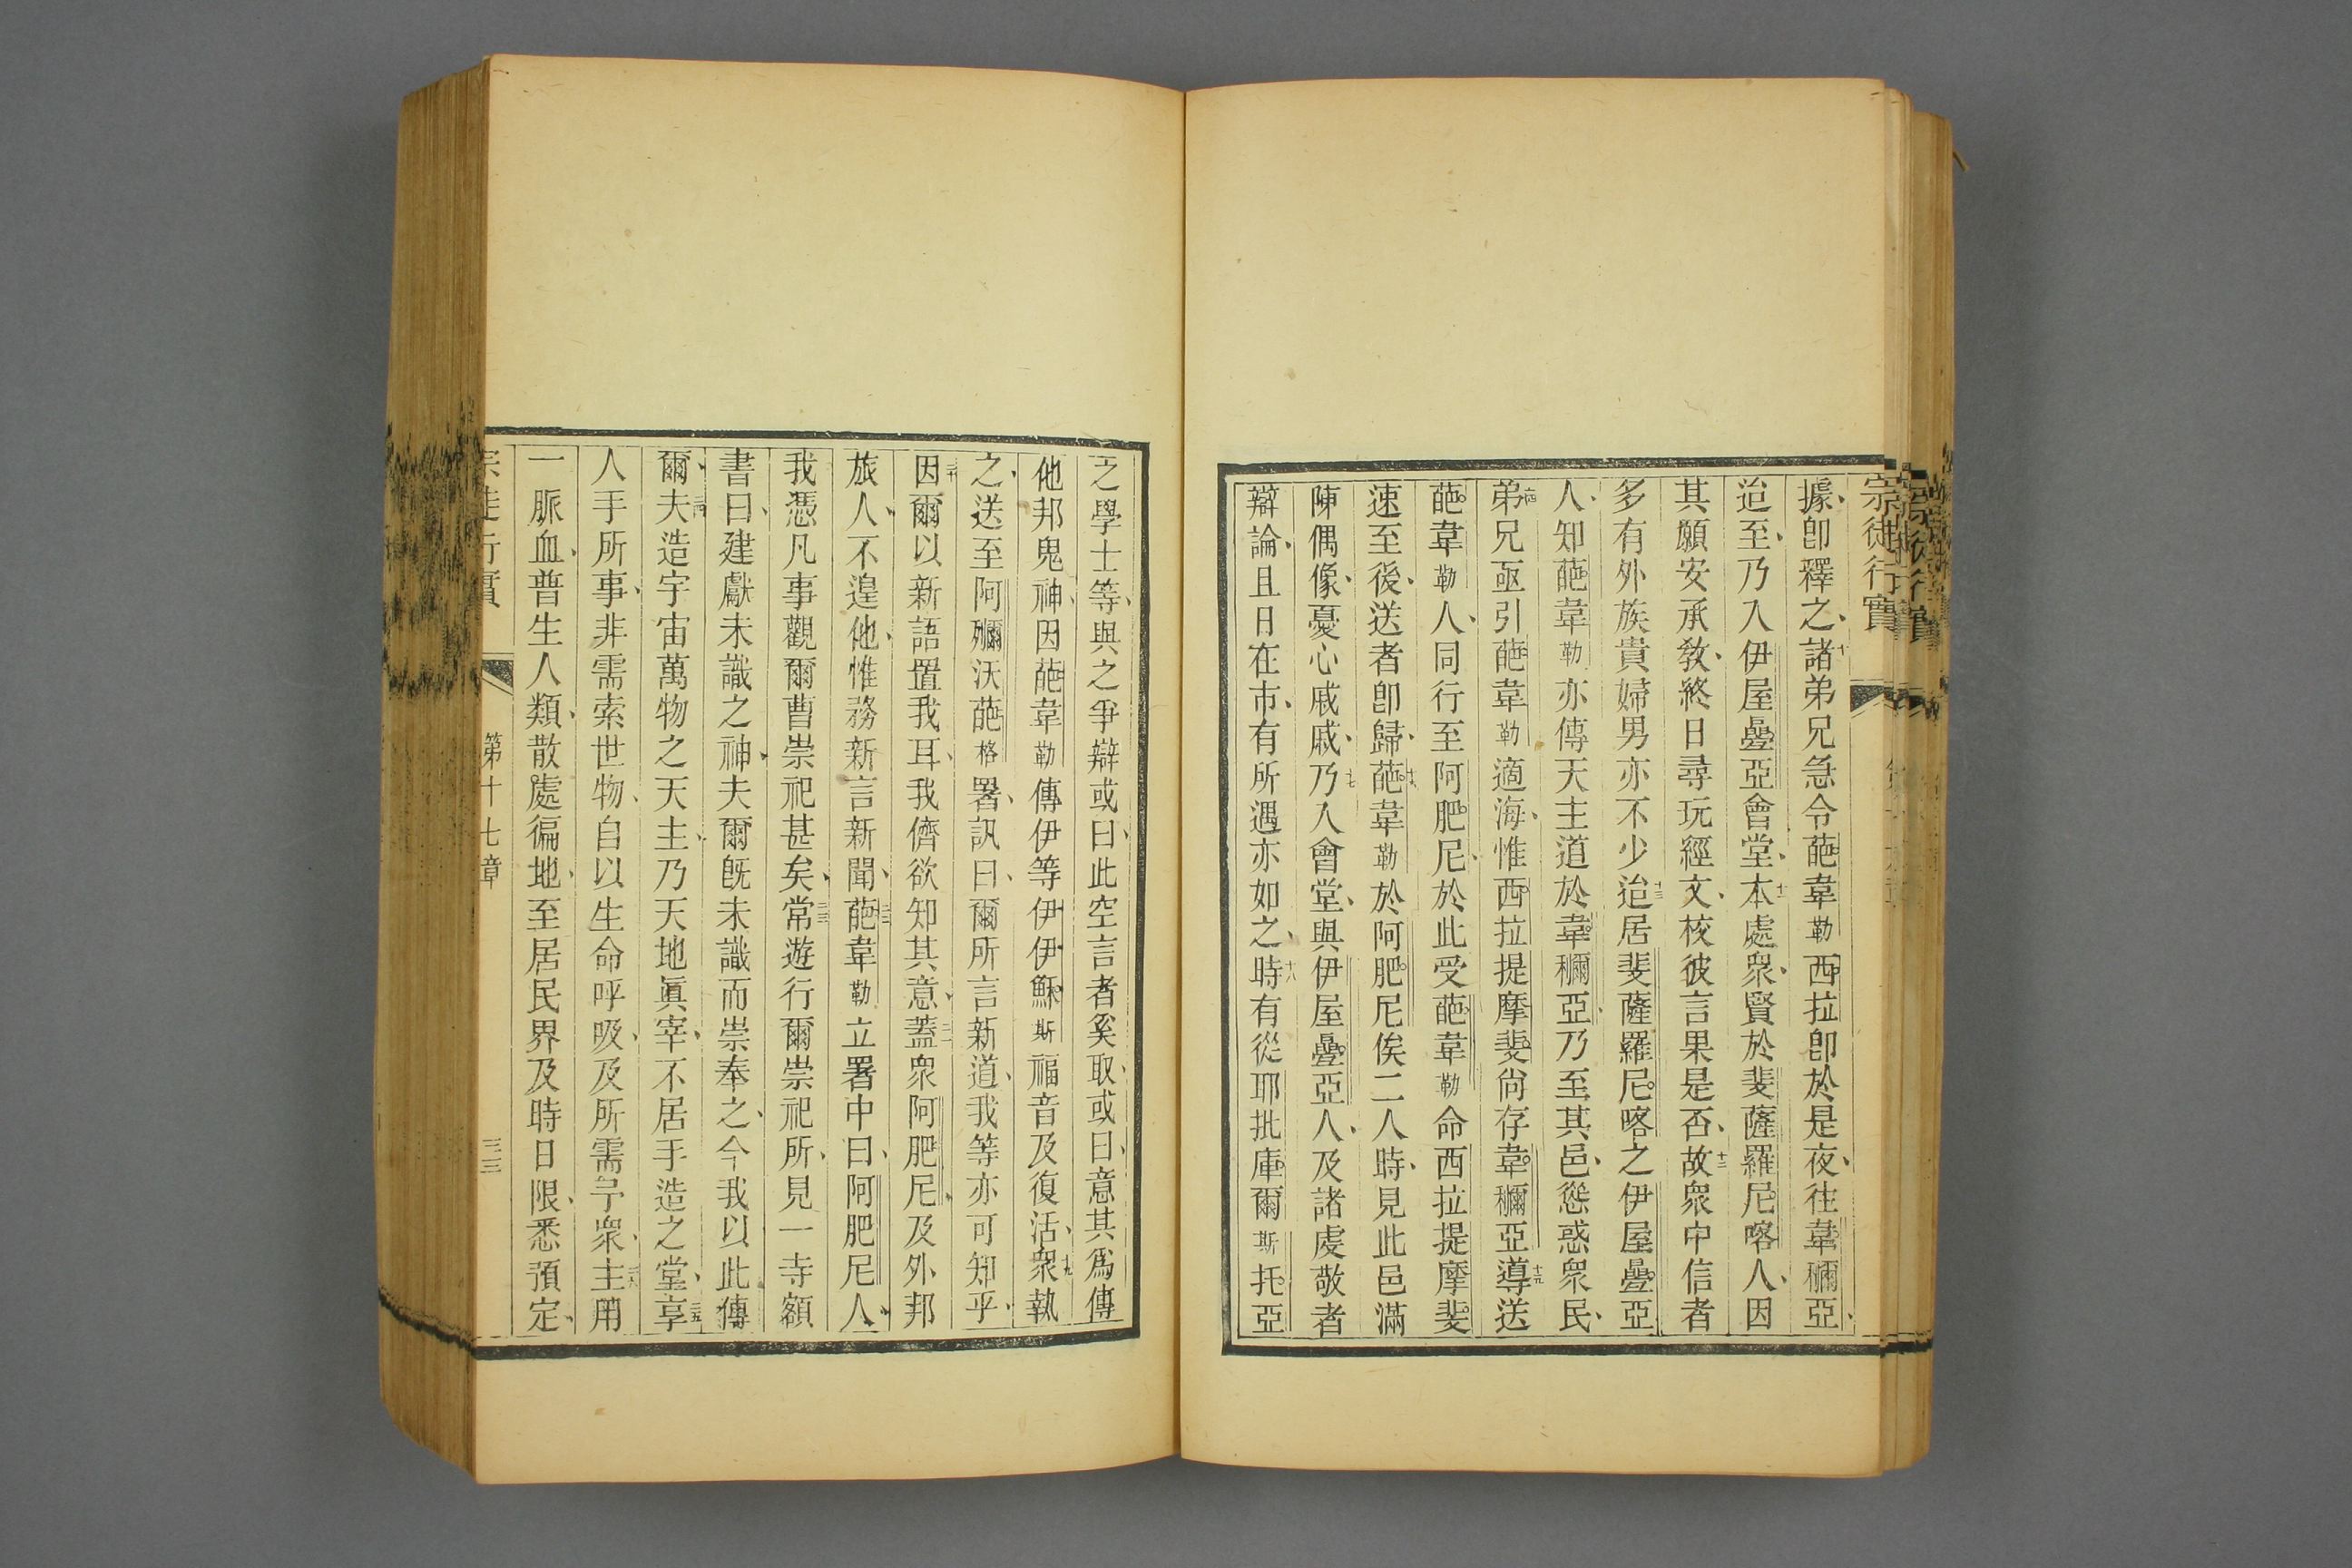 宗徒行實
據卽釋之諸弟兄急令葩韋勒西拉卽於是夜往韋穪亞
迨至乃入伊屋疊亞會堂本處衆賢於斐薩羅尼喀人因
其願安承敎終日尋玩經文核彼言果是否故衆中信者
多有外族貴婦男亦不少迨居斐薩羅尼喀之伊屋疊亞
人知葩韋勒亦傳天主道於韋穪亞乃至其邑慫惑衆民
弟兄亟引葩韋勒適海惟西拉提摩斐尙存韋穪亞導送
葩韋勒人同行至阿肥尼於此受葩韋勒命西拉提摩斐
速至後送者卽歸葩韋勒於阿肥尼俟二人時見此邑滿
陳偶像憂心戚戚乃入會堂與伊屋疊亞人及諸虔敬者
辯論且日在市有所遇亦如之時有從耶批庫爾斯托亞
之學士等與之爭辯或曰此空言者奚取或曰意其爲傳
他邦鬼神因葩韋勒傳伊等伊伊穌斯福音及復活衆執
之送至阿殤沃葩格署訊曰爾所言新道我等亦可知乎
因爾以新語置我耳我儕欲知其意蓋衆阿肥尼及外邦
旅人不遑他惟務新言新聞葩韋勒立署中曰阿肥尼人
我憑凡事觀爾曹崇祀甚矣常遊行爾崇祀所見一寺額
書曰建獻未識之神夫爾旣未識而崇奉之今我以此傳
爾夫造宇宙萬物之天主乃天地眞宰不居手造之堂享
人手所事非需索世物自以生命呼吸及所需予衆主用
一脈血普生人類散處徧地至居民界及時日限悉預定
宗徒行實 第十七章 三三